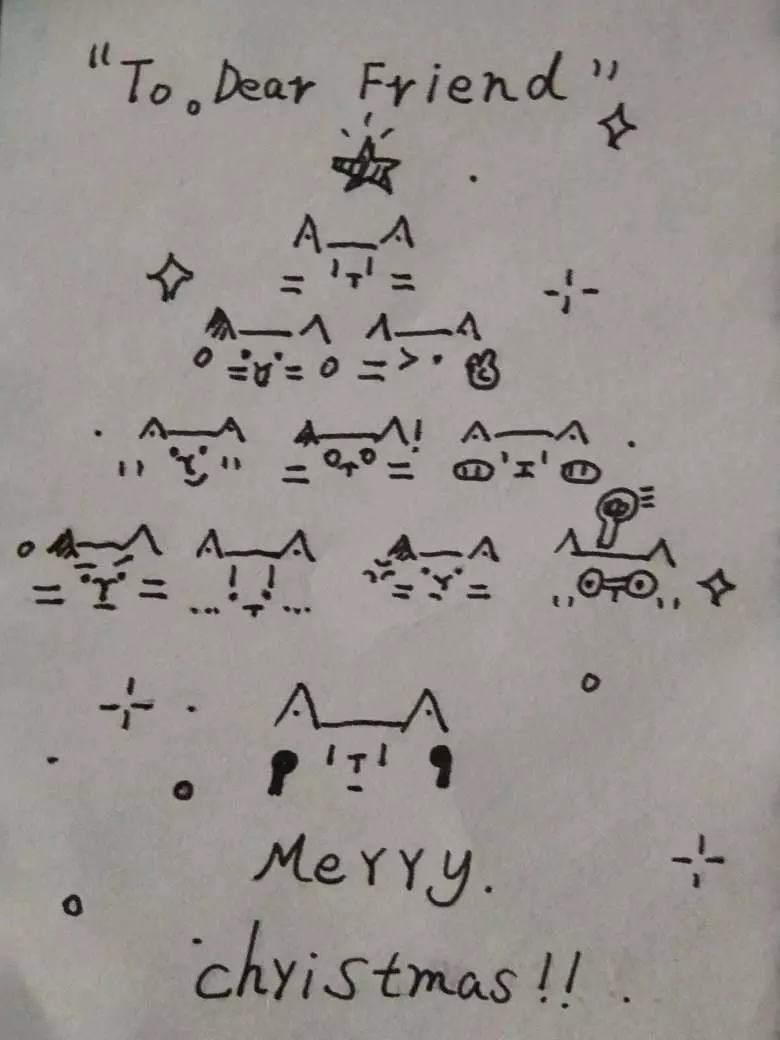 "To. Dear Friend"
Merry.
chyistmas!!.